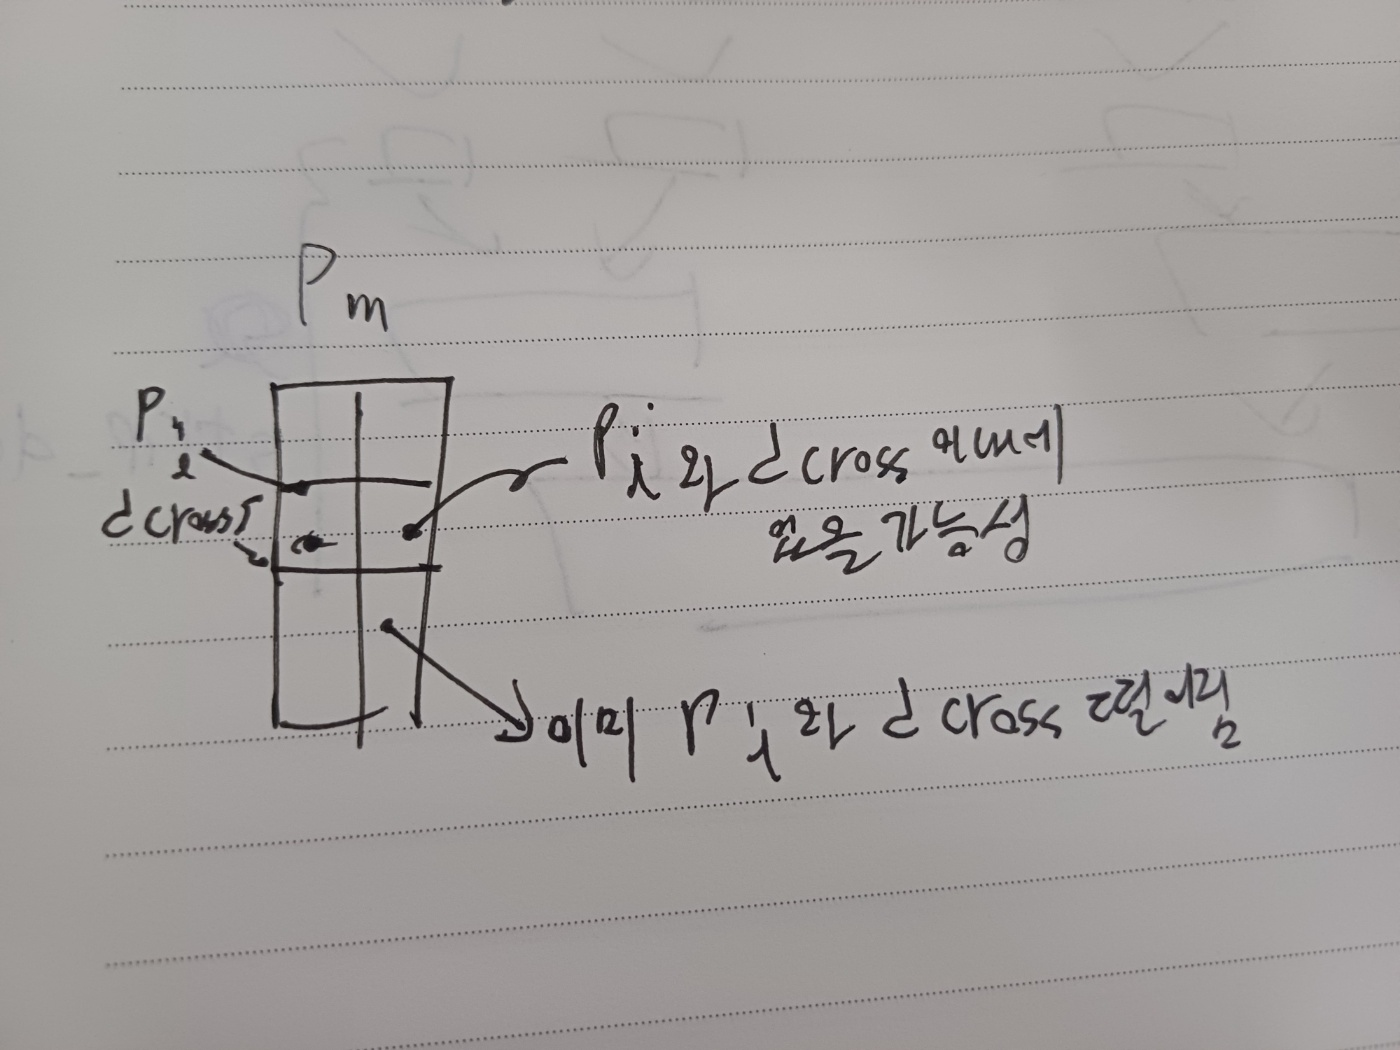 Pm
Pi
d cross
Pi 와 d cross 때문에
없을 가능성
이미 Pi 와 d cross